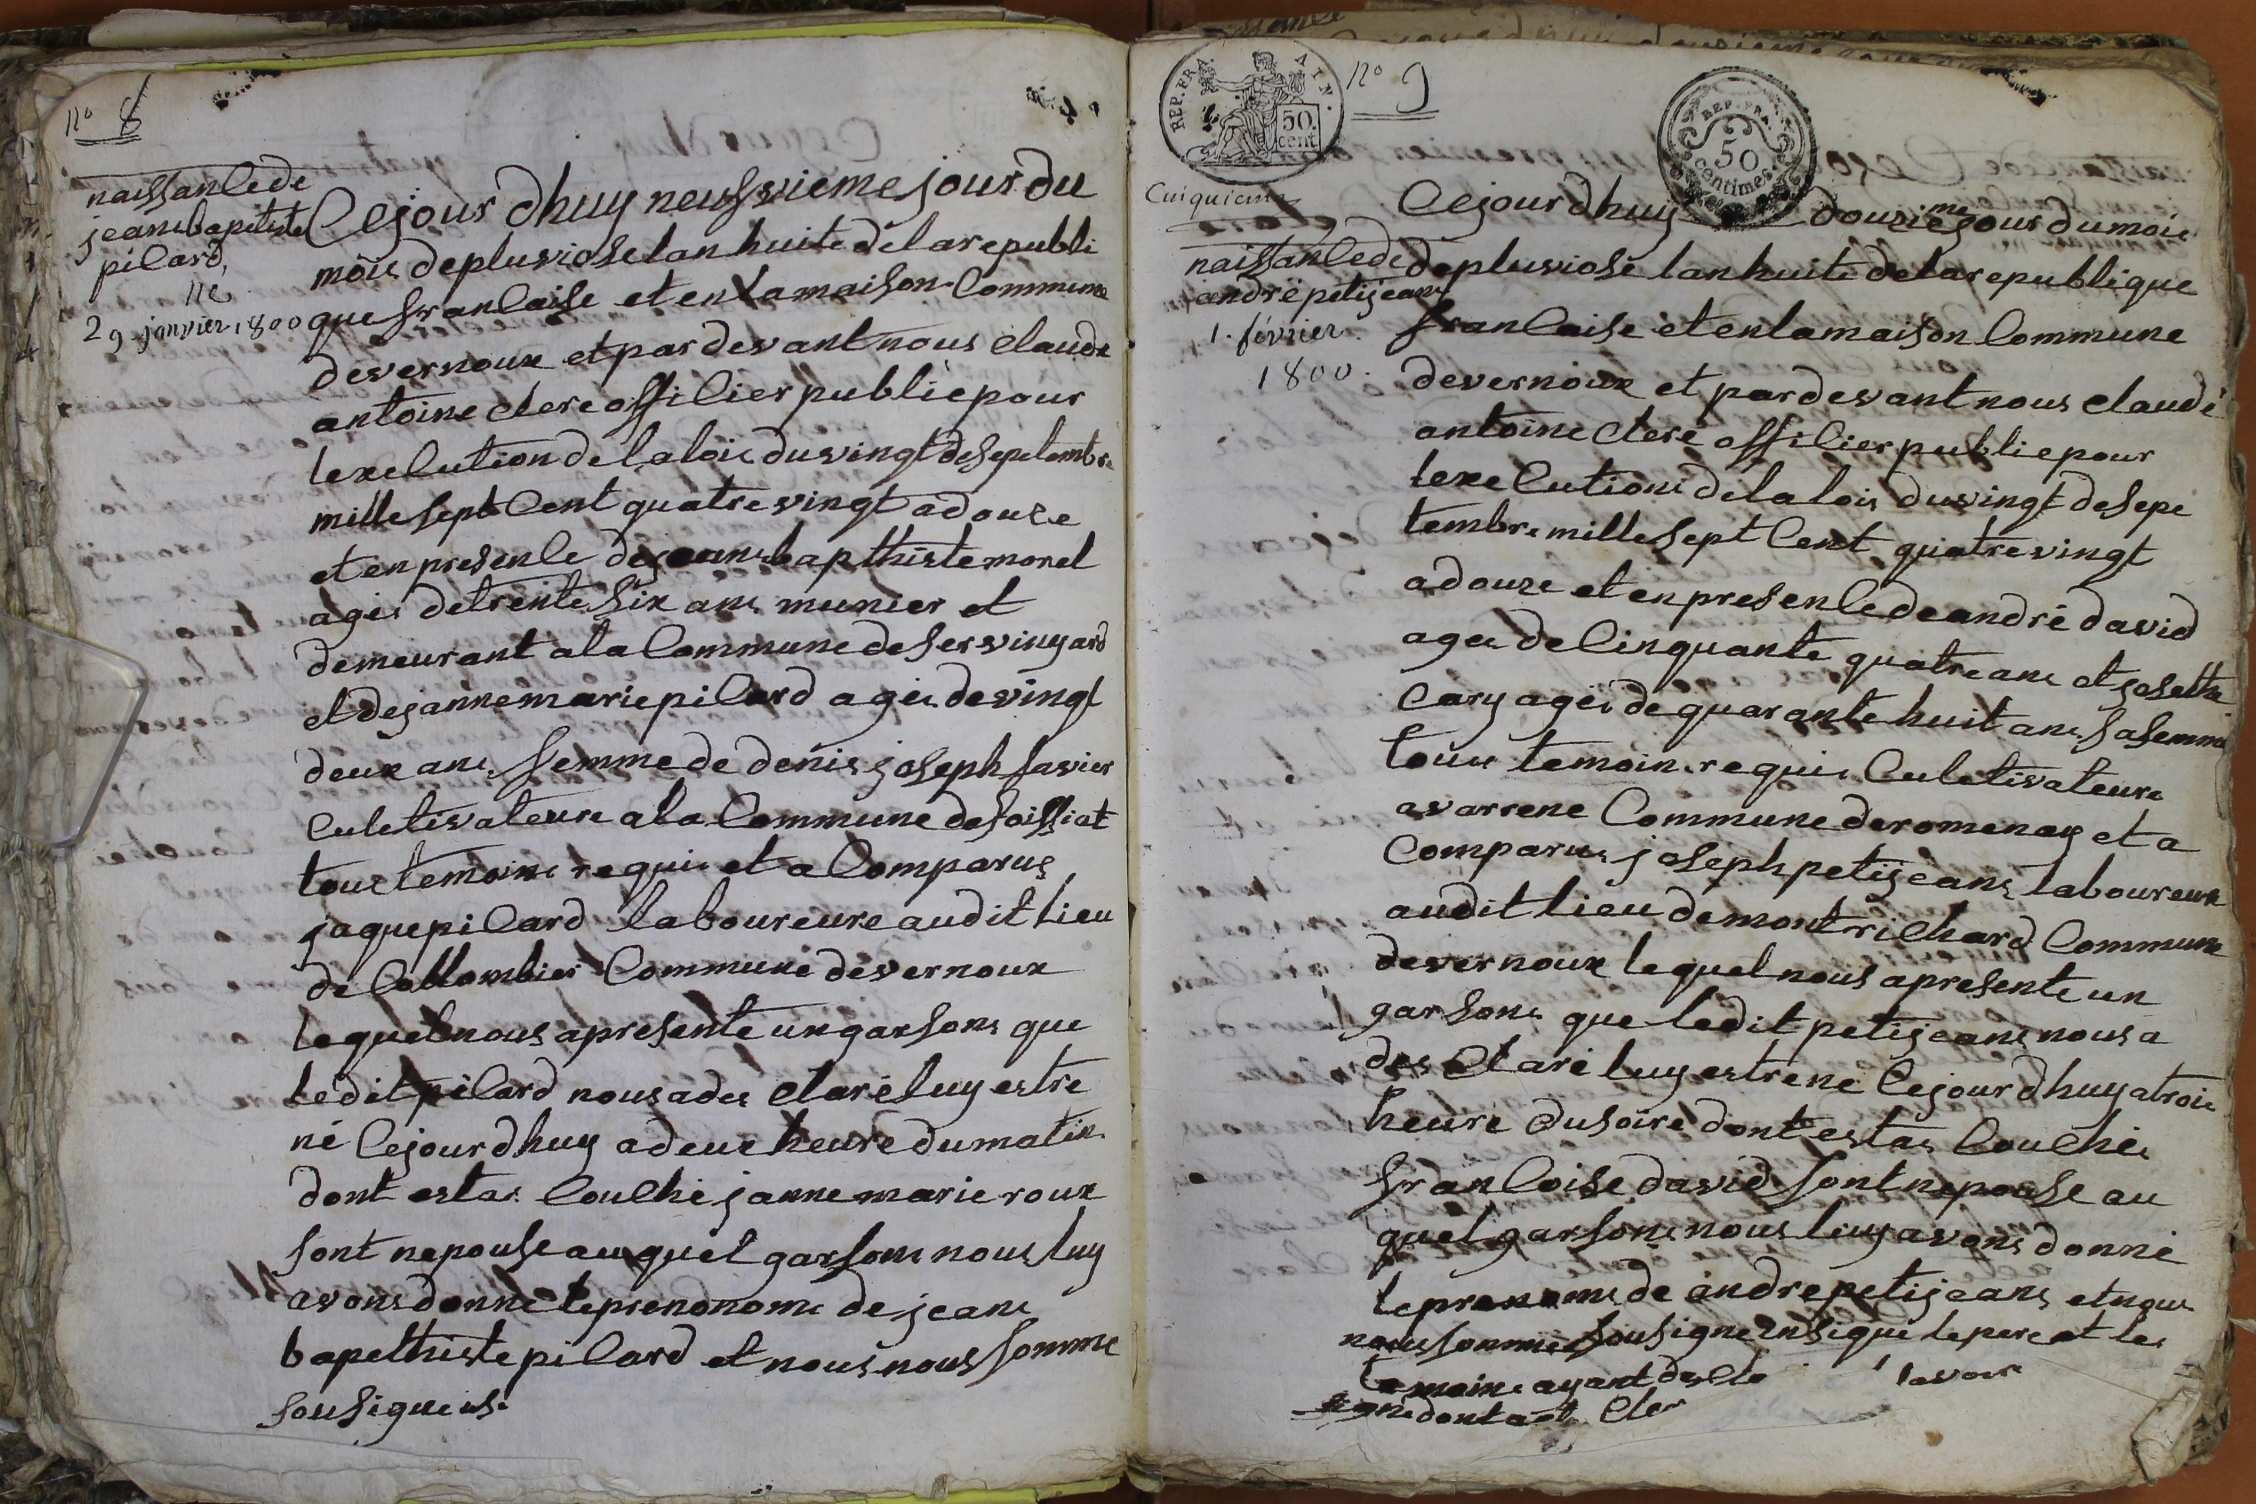 n° 8
naissancede
jeanbaptiste
pilard,
né
29 janvier 1800
Cejour dhuy neufvieme jour du
mois depluviose lan huite de la republi
que francaise et en la maison Commune
devernoux et par devant nous claude
antoine clerc officier public pour
lexecution de la lois du vingt de septembre
mille sept Cent quatre vingt a douze
et en presence de jeans bapthiste morel
agés de trente six ans munier et
demeurant a la Commune de servinyard
et dejannemarie pilard agés de vingt
deux ans femme de denis joseph favier
Culetivateure a la Commune desaissiat
tous temoins requis et a Comparus
jaque pilard laboureure audit lieu
de Collombier Commune devernoux
lequel nous apresente un garsons que
ledit pilard nous a des claré luy estre
né Cejour dhuy a deux heure du matin
dont estas Couché janne marie roux
sont nepouse au quel garsons nous luy
avons donné le prenonoms de jeans
bapethiste pilard et nous nous somme
sousignens.
REP. FRA.
AIN.
50.
cent
n° 9
REP. FRA.
50
centimes
Cuiquieme
naissancede
andrépetijeans
1. février.
1800.
Cejour dhuy douzieme jour du mois
depluviose lan huite de la republique
francaise et en la maison Commune
devernoux et par devant nous claude
antoine clere officier public pour
lexecutions de la lois du vingt de sepe
tembre mille sept Cent quatre vingt
adouze et en presence de andré david
agés de Cinquante quatre ans et josethe
Cary agés de quarante huit ans safemme
tous temoins requis Culetivateure
avarrene Commune deromenay et a
Comparus joseph petijeans laboureur
audit lieu demontrichard Commune
devernoux lequel nous apresente un
garsons que ledit petijeans nous a
des claré luy estre né Cejour dhuy a trois
heure du soire dont estas Couché
francoise david sont nepouse au
quel garsons nous luy avons donné
le prenoms de andre petijeans et nous
nous sommes sousigne ensique le pere et les
temoins ayant de
savoir
signe dont act Cler